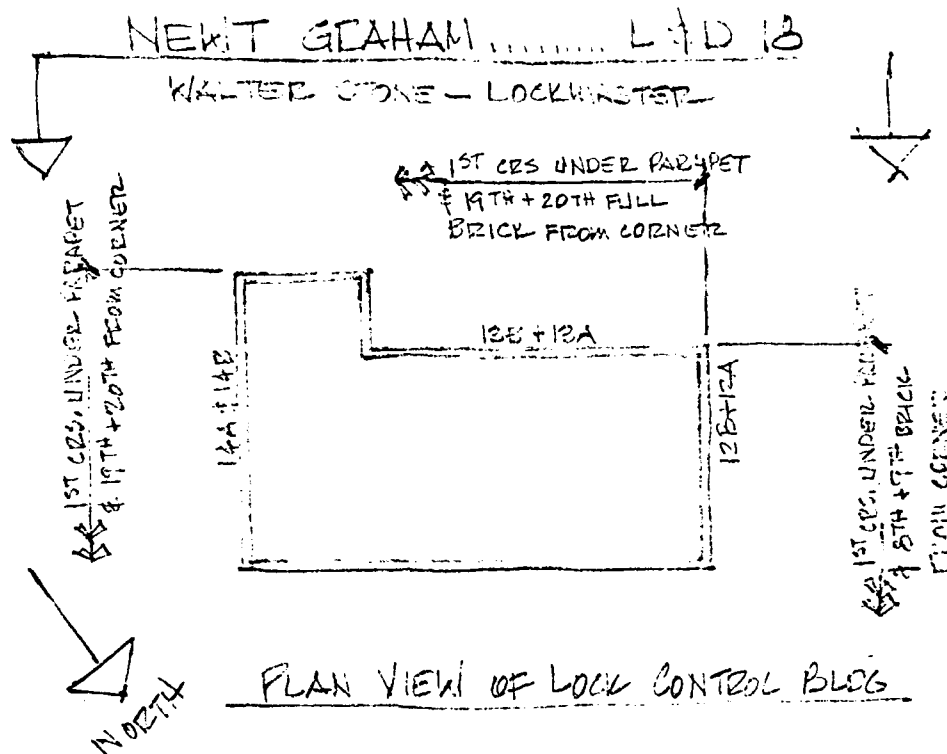 NEWT GRAHAM ......... L & D 18
WALTER STONE - LOCKMASTER
1ST CRS UNDER PARAPET
& 19TH + 20TH FULL
BRICK FROM CORNER
1ST CRS. UNDER PARAPET
& 19TH + 20TH FROM CORNER
14A + 14B
13B + 13A
12B + 12A
1ST CRS. UNDER PARAPET
& 8TH + 9TH BRICK
FROM CORNER
NORTH
PLAN VIEW OF LOCK CONTROL BLDG